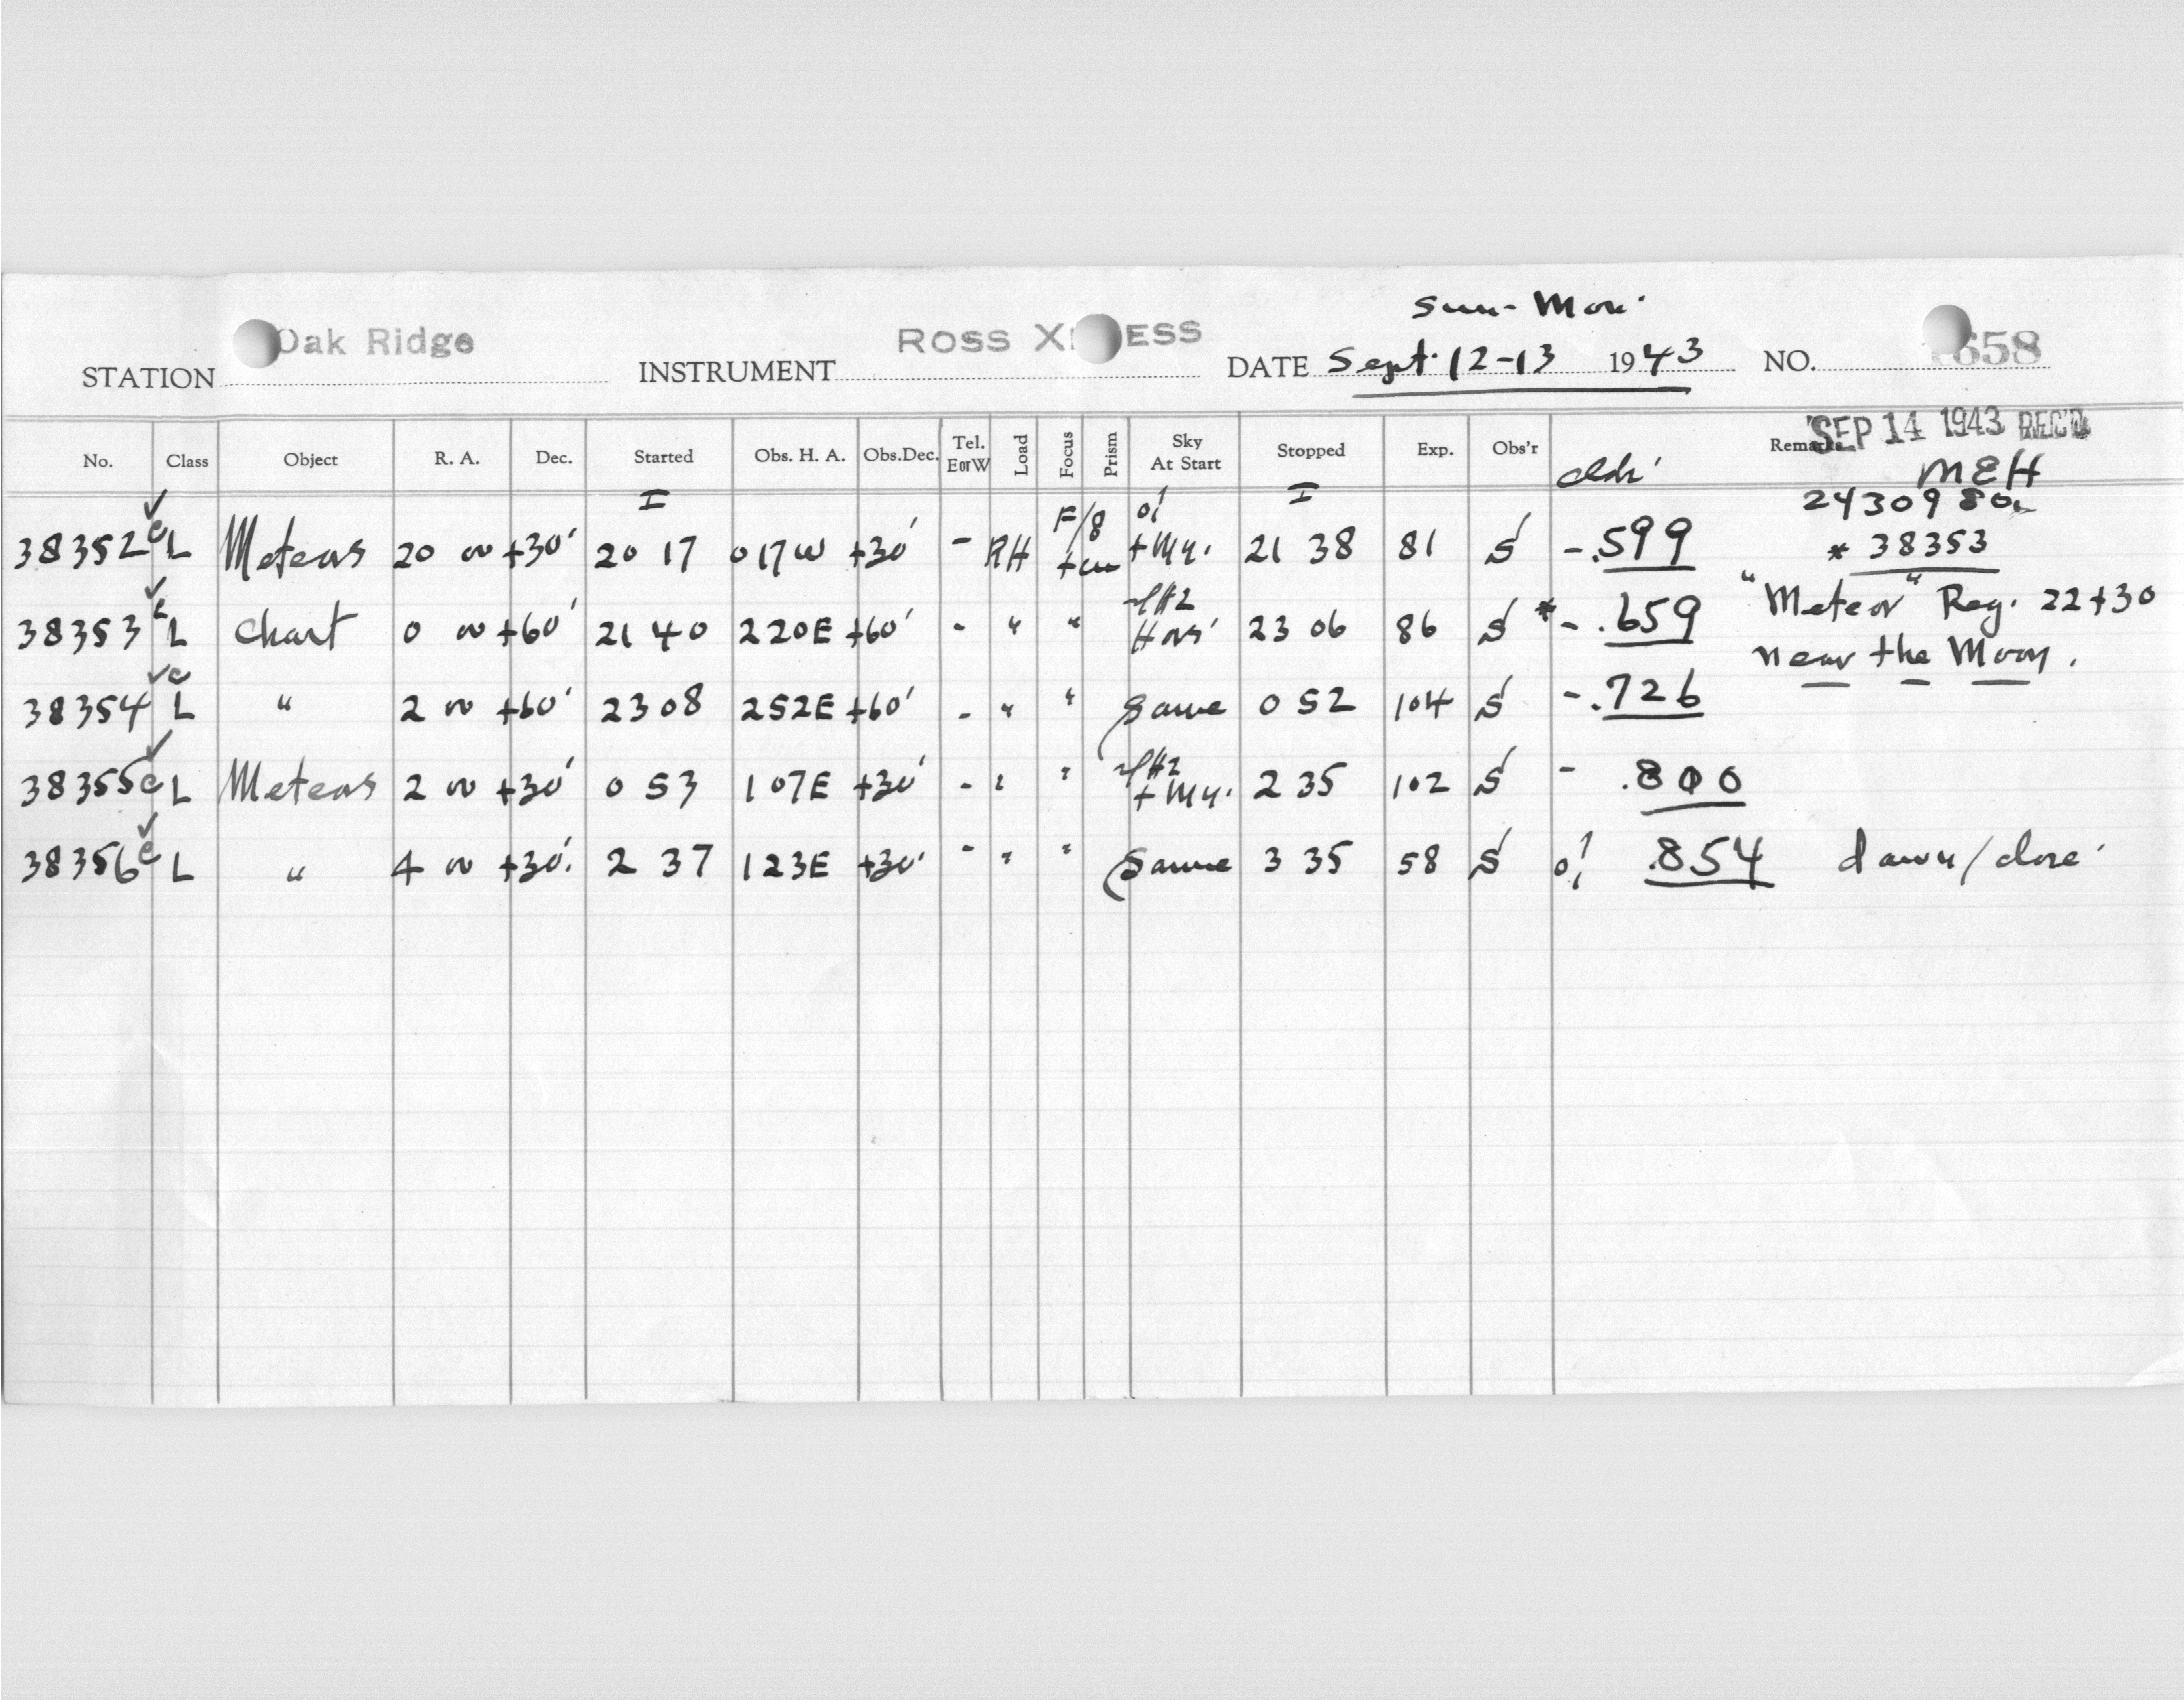 Sun-Mon.
STATION Oak Ridge INSTRUMENT ROSS X ESS DATE Sept. 12-13 1943 NO. 1658
SEP 14 1943 REC'D
No. Class Object R. A. Dec. Started Obs. H. A. Obs.Dec. Tel. E or W Load Focus Prism Sky At Start Stopped Exp. Obs'r Remarks
MEH
I I 2430980.
38352 c L Meteors 20 00 +30 20 17 017W +30 - RH F/8 + My. 21 38 81 S -.599 * 38353
38353 c L Chart 0 00 +60 21 40 220E +60 - " " 23 06 86 S * -.659 "Meteor" Reg. 22+30
near the Moon.
38354 c L " 2 00 +60 23 08 252E +60 - " " Same 0 52 104 S -.726
38355 c L Meteors 2 00 +30 0 53 107E +30 - " " + My. 2 35 102 S - .800
38356 c L " 4 00 +30 2 37 123E +30 - " " Same 3 35 58 S .854 dawn/close